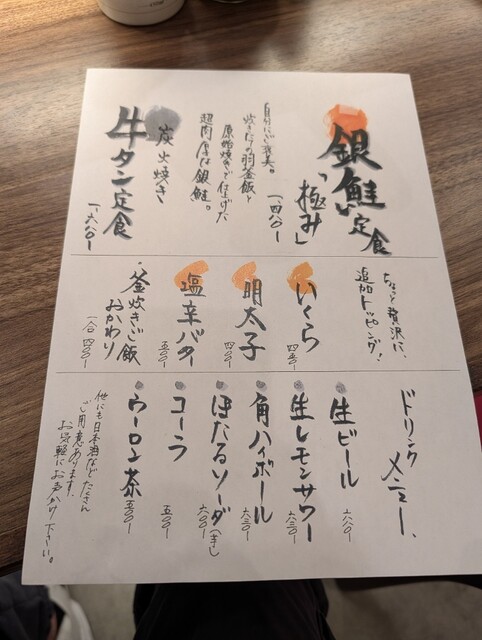 銀鮭定食
「極み」
一、四八〇ー
自分にご褒美。
炊きたての羽釜飯と
原始焼きで仕上げた
超肉厚な銀鮭。
炭火焼き
牛タン定食
一、六八〇ー
ちょっと贅沢に、
追加トッピング!
いくら
四五〇ー
明太子
四〇〇ー
塩辛バタ
五〇〇ー
・釜炊きご飯
おかわり
一合 四〇〇ー
ドリンク
メニュー、
生ビール
六八〇ー
生レモンサワー
六三〇ー
角ハイボール
六三〇ー
ほたるソーダ(芋)
六〇〇ー
コーラ
五〇〇ー
ウーロン茶
五〇〇ー
他にも日本酒などたくさん
ご用意あります。
お気軽にお声かけ下さい。